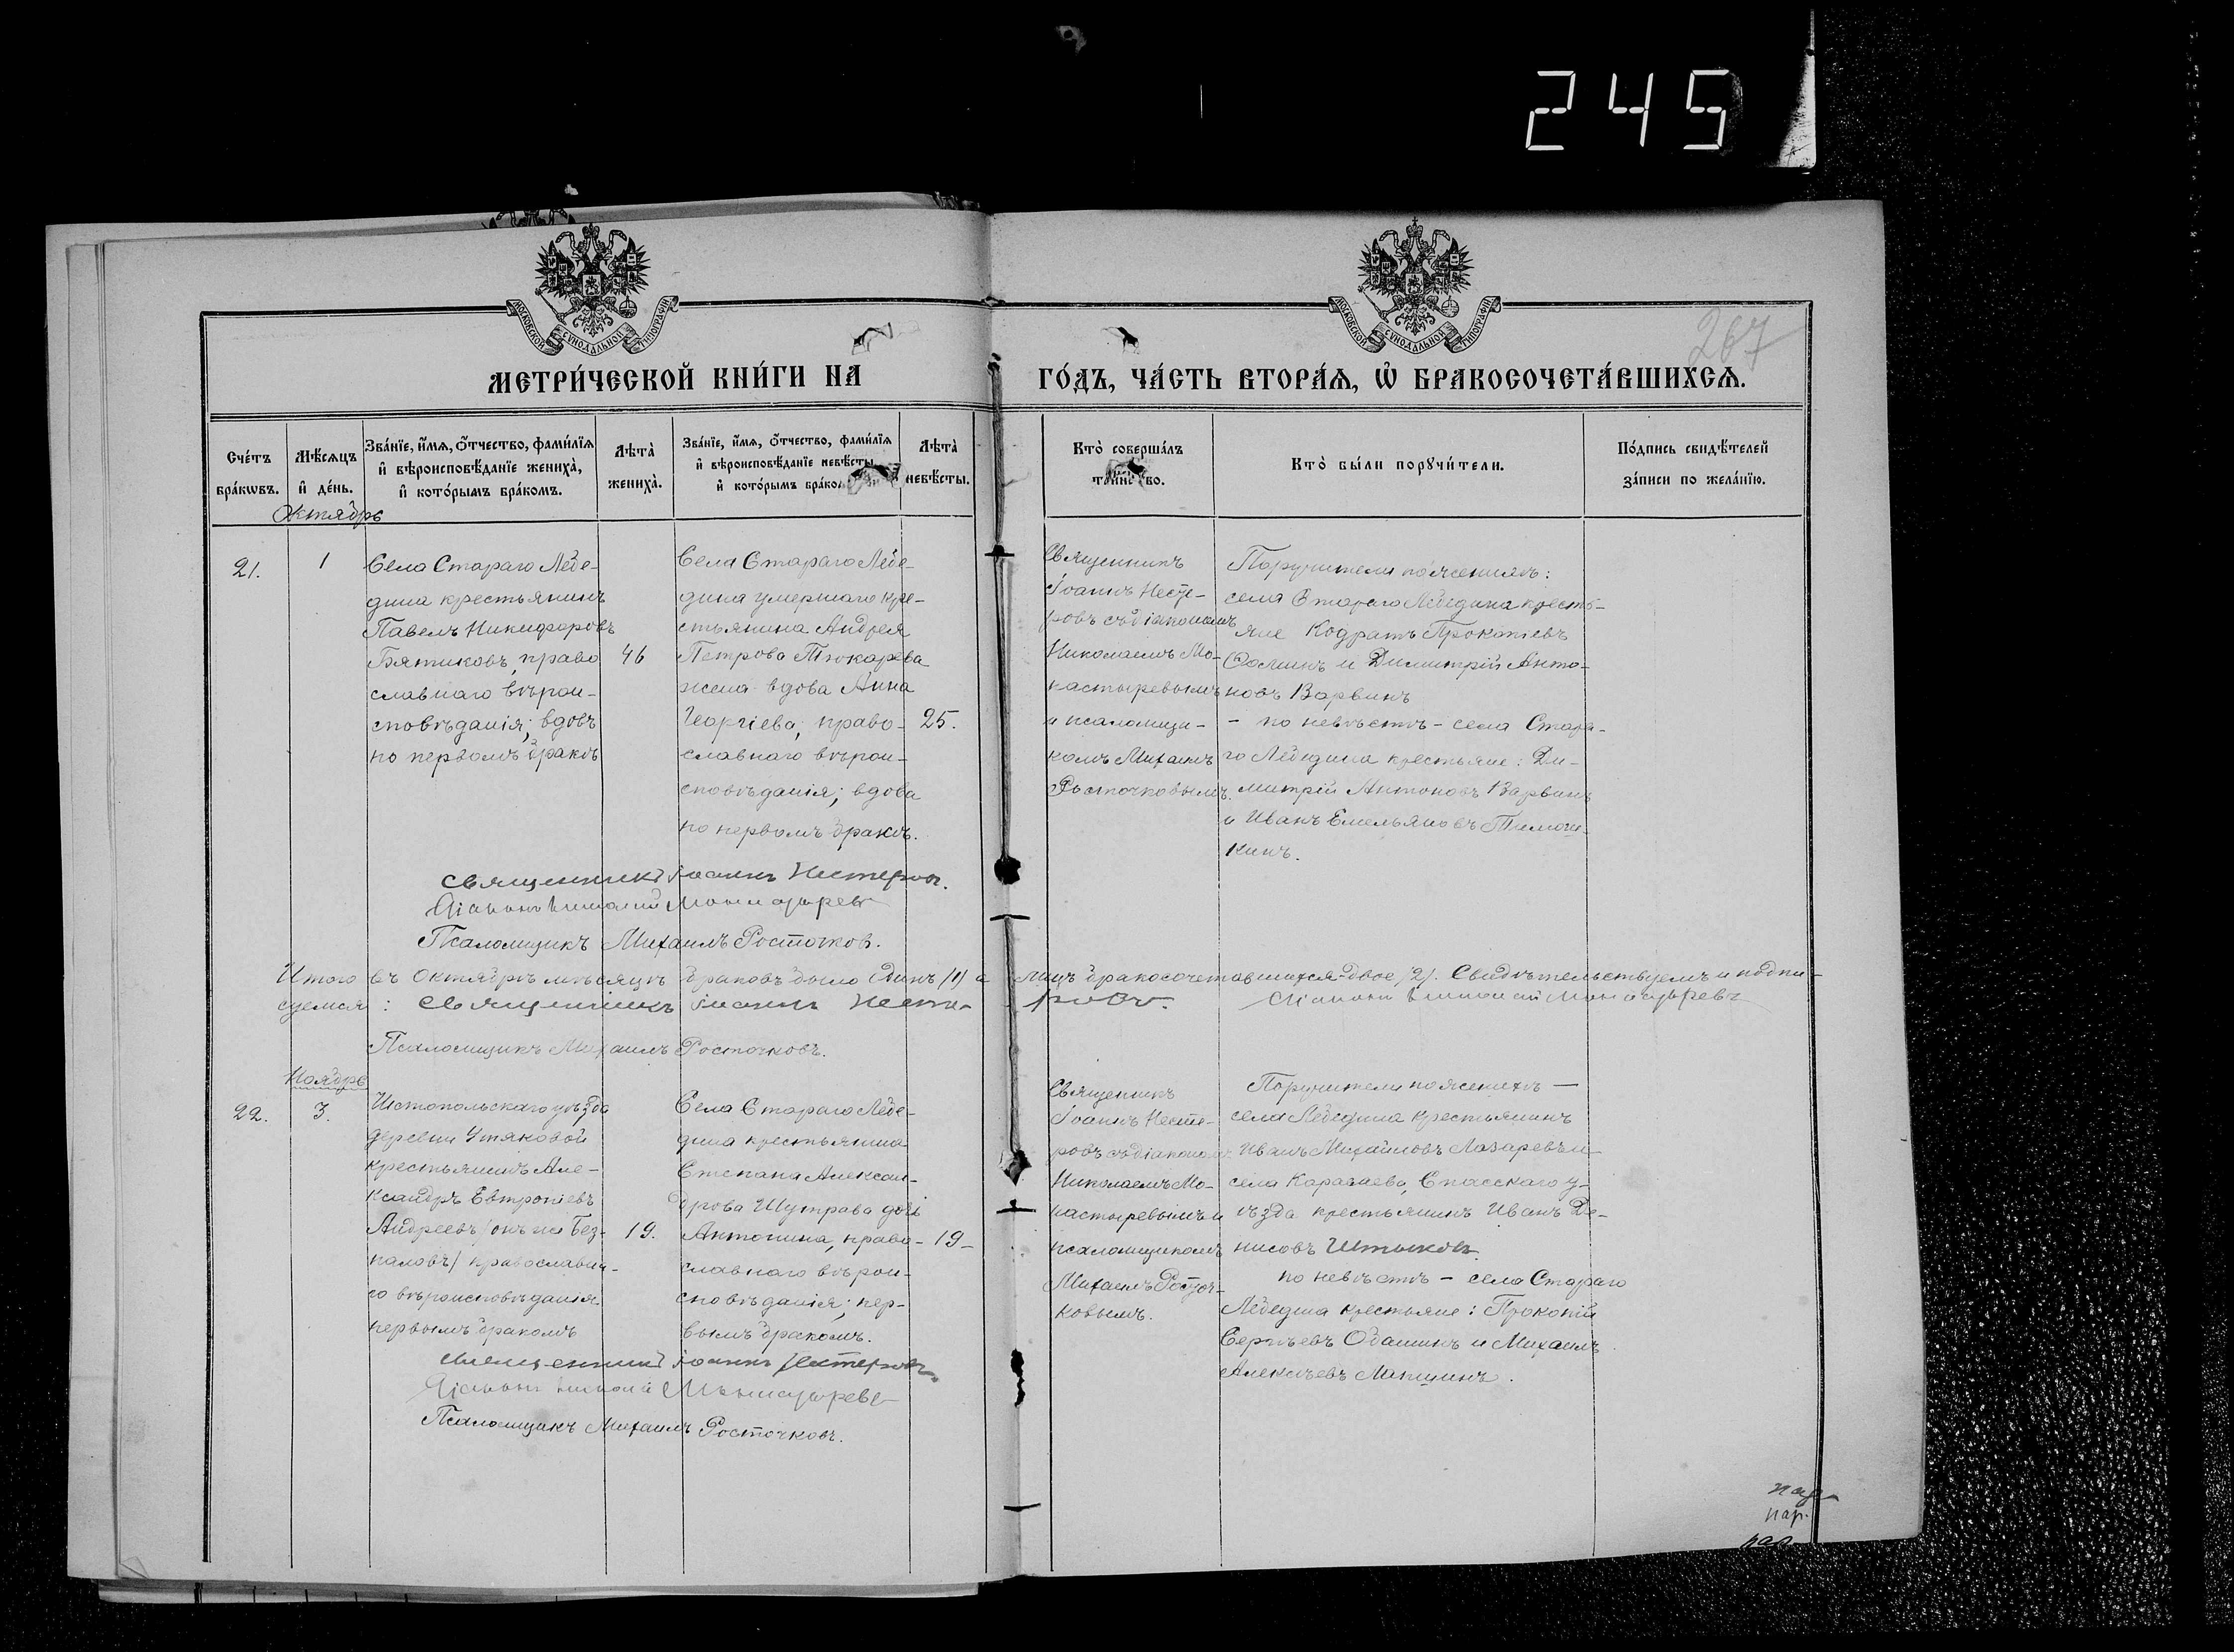 245
МОСКОВСКОЙ СѴНОДАЛЬНОЙ ТИПОГРАФІИ
МОСКОВСКОЙ СѴНОДАЛЬНОЙ ТИПОГРАФІИ
267
МЕТРИ́ЧЕСКОЙ КНИ́ГИ НА ГО́ДЪ, ЧА́СТЬ ВТОРА́Ѧ, Ѽ БРАКОСОЧЕТА́ВШИХСѦ.
Сче́тъ
бра́кѡвъ.
Мѣ́сѧцъ
и҆ де́нь.
Зва́нїе, и҆́мѧ, ѻ҆́тчество, фами́лїѧ
и҆ вѣроисповѣ́данїе жениха̀,
и҆ кото́рымъ бра́комъ.
Лѣта̀
жениха̀.
Зва́нїе, и҆́мѧ, ѻ҆́тчество, фами́лїѧ
и҆ вѣроисповѣ́данїе невѣ́сты
и҆ кото́рымъ бра́ко
Лѣта̀
невѣ́сты.
Кто̀ соверша́лъ
та́инство.
Кто̀ бы́ли порꙋчи́тели.
По́дпись свидѣ́телей
за́писи по жела́нїю.
Октябрь
21.
1
Села Стараго Лебе-
дина крестьянинъ
Павелъ Никифоровъ
Бятиковъ, право
славнаго вѣрои-
сповѣданія; вдовъ
по первомъ бракѣ
46
Села Стараго Лебе-
дина умершаго кре-
стьянина Андрея
Петрова Тюкарева
жена вдова Анна
Георгіева, право-
славнаго вѣрои-
сповѣданія; вдова
по первомъ бракѣ.
25.
Священникъ
Іоаннъ Несте-
ровъ съ діакономъ
Николаемъ Мо-
настыревымъ
и псаломщи-
комъ Михаиломъ
Росточковымъ.
Поручители по женихѣ:
села Стараго Лебедина кресть-
яне Кодратъ Прокопіевъ
Ѳоминъ и Димитрій Анто-
новъ Варвинъ
- по невѣстѣ - села Стара-
го Лебедина крестьяне: Ди-
митрій Антоновъ Варвинъ
и Иванъ Емельяновъ Тимоч-
кинъ.
Священникъ Іоаннъ Нестеровъ.
Діаконъ Николай Монастыревъ
Псаломщикъ Михаилъ Росточков.
Итого въ Октябрѣ мѣсяцѣ браковъ было Одинъ /1/ а лицъ бракосочетавшихся двое /2/. Свидѣтельствуемъ и подпи-
суемся: Священникъ Іоаннъ Несте- ровъ. Діаконъ Николай Монастыревъ
Псаломщикъ Михаилъ Росточковъ.
Ноябрь
22.
3.
Чистопольскаго уѣзда
деревни Утяковой
крестьянинъ Але-
ксандръ Евтропіевъ
Андреевъ /онъ же Без-
паловъ/ православна-
го вѣроисповѣданія
первымъ бракомъ
19.
Села Стараго Лебе-
дина крестьянина
Степана Алексан-
дрова Шутрава дочь
Антонина, право-
славнаго вѣрои-
сповѣданія; пер-
вымъ бракомъ.
19-
Священникъ
Іоаннъ Несте-
ровъ съ діакономъ
Николаемъ Мо-
настыревымъ и
псаломщикомъ
Михаиломъ Росточ-
ковымъ.
Поручители по женихѣ —
села Лебедина крестьянинъ
Иванъ Михайловъ Лазаревъ и
села Каргаева, Спасскаго у-
ѣзда крестьянинъ Иванъ Де-
нисовъ Штыковъ.
по невѣстѣ - села Стараго
Лебедина крестьяне: Прокопій
Сергѣевъ Обашинъ и Михаилъ
Алексѣевъ Лапшинъ.
Священникъ Іоаннъ Нестеровъ
Діаконъ Николай Монастыревъ
Псаломщикъ Михаилъ Росточковъ.
нар.